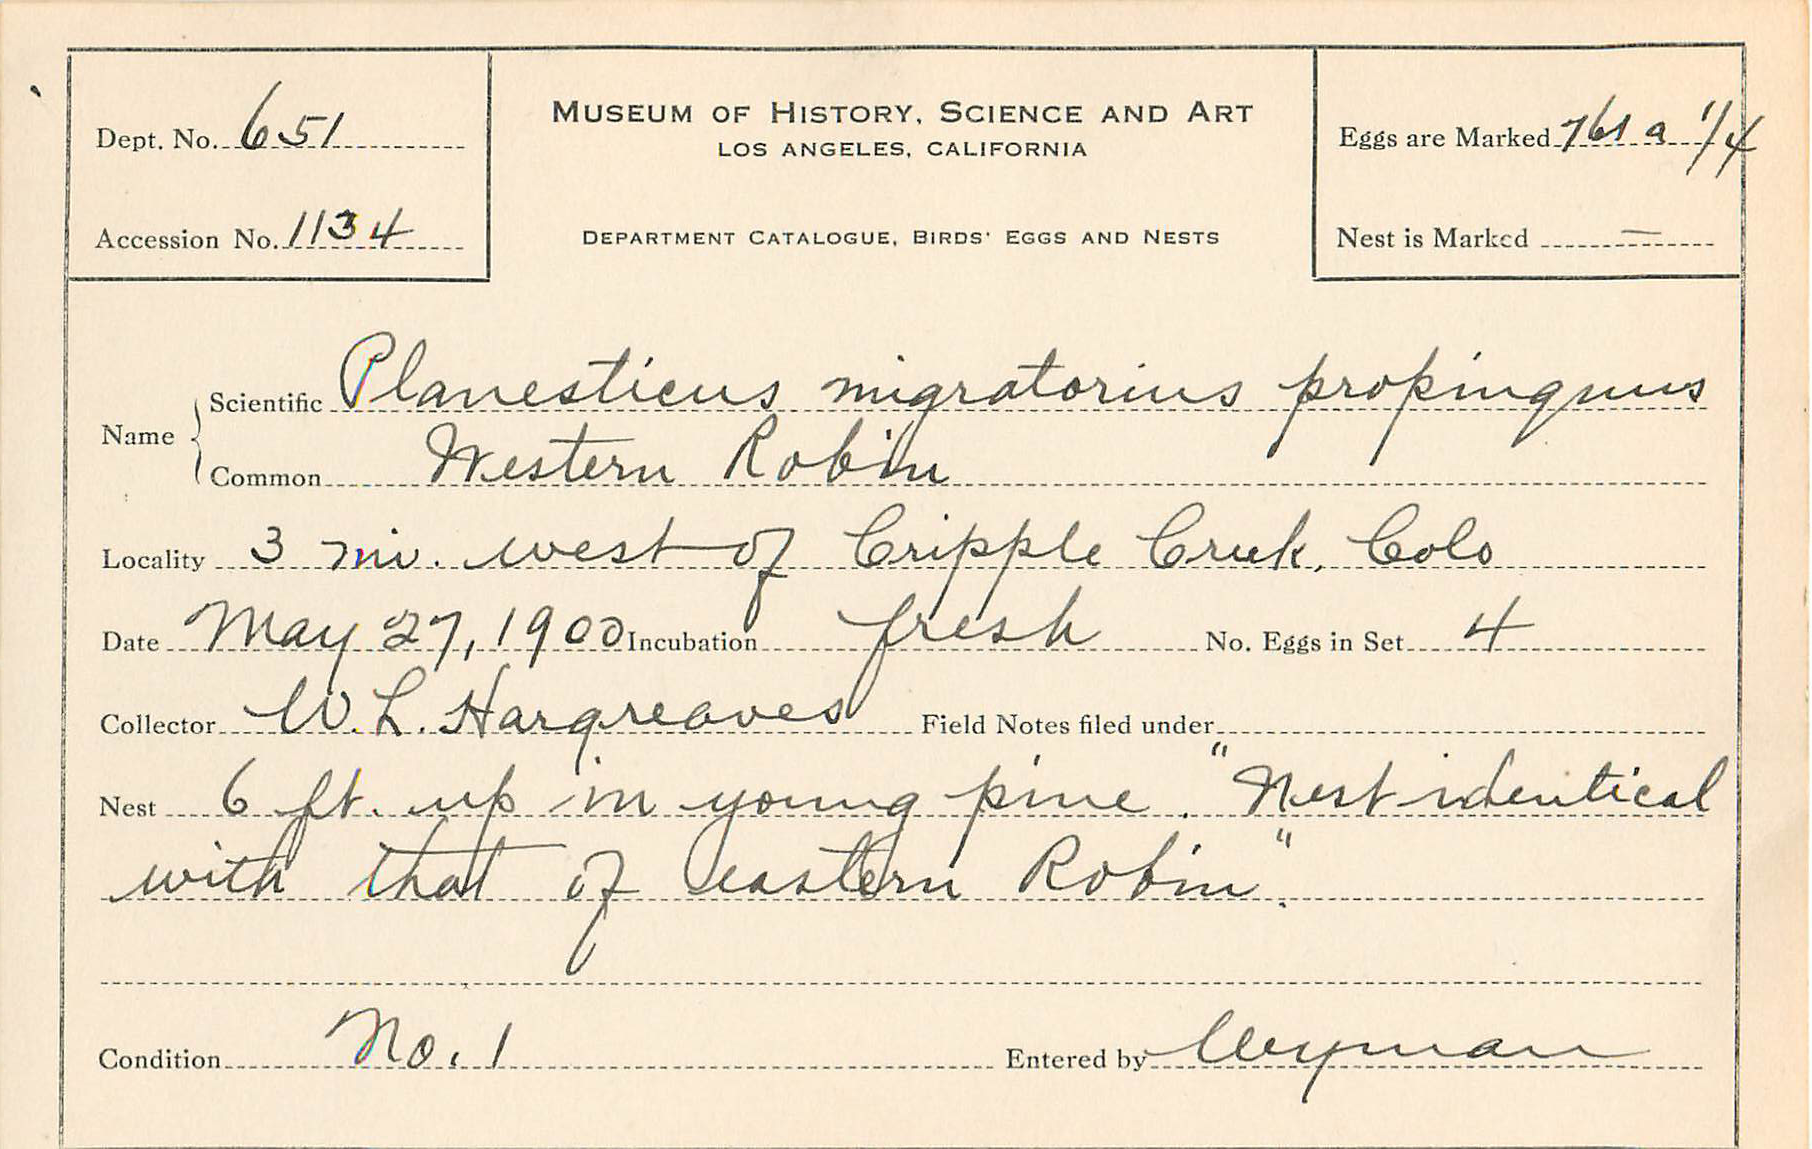 Dept. No. 651
Accession No. 1134
MUSEUM OF HISTORY, SCIENCE AND ART
LOS ANGELES, CALIFORNIA
DEPARTMENT CATALOGUE, BIRDS' EGGS AND NESTS
Eggs are Marked 761 a 1/4
Nest is Marked —
Name
Scientific Planesticus migratorius propinquus
Common Western Robin
Locality 3 mi. west of Cripple Creek, Colo
Date May 27, 1900 Incubation fresh No. Eggs in Set 4
Collector W. L. Hargreaves Field Notes filed under
Nest 6 ft. up in young pine. "Nest identical
with that of eastern Robin".
Condition No. 1 Entered by Wyman